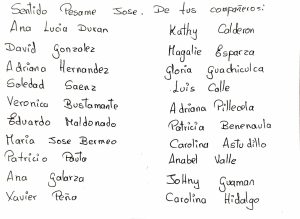 Sentido Pesame Jose. De tus compañeros:
Ana Lucia Duran
David Gonzalez
Adriana Hernandez
Soledad Saenz
Veronica Bustamante
Eduardo Maldonado
Maria Jose Bermeo
Patricio Pauta
Ana Galarza
Xavier Peña
Kathy Calderon
Magalie Esparza
Gloria Guachichulca
Luis Calle
Adriana Pillcola
Patricia Benenaula
Carolina Astudillo
Anabel Valle
Johnny Guaman
Carolina Hidalgo